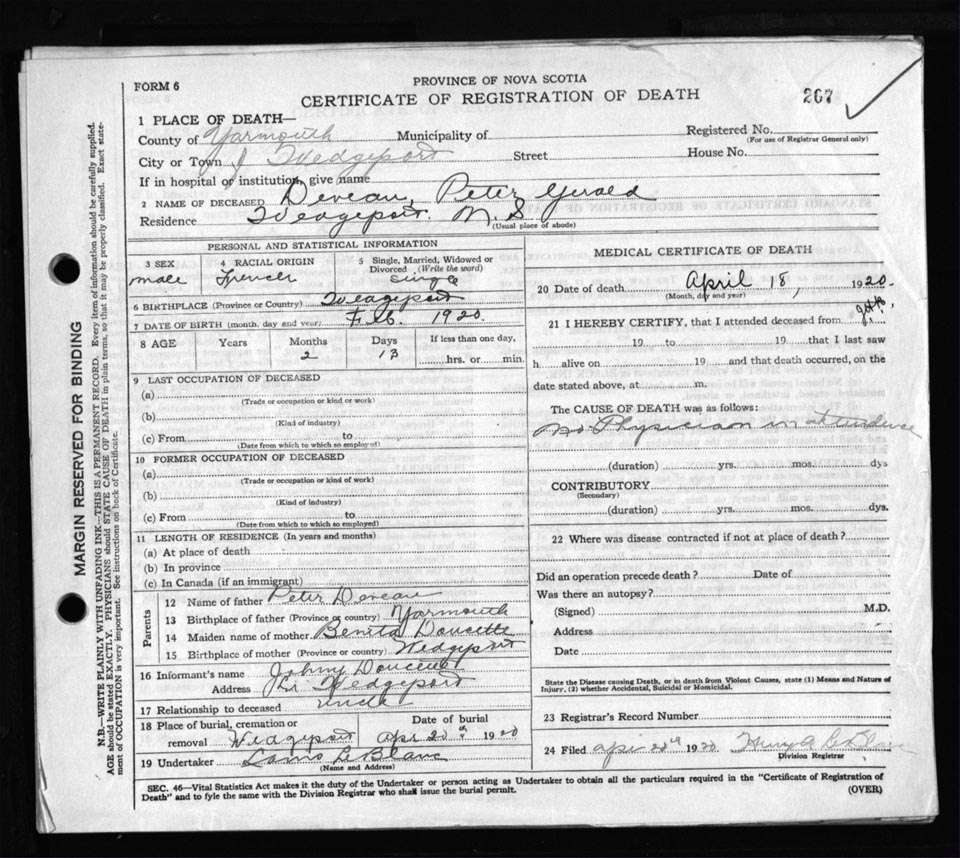 FORM 6
PROVINCE OF NOVA SCOTIA
CERTIFICATE OF REGISTRATION OF DEATH
267
1 PLACE OF DEATH—
County of Yarmouth Municipality of Registered No.
(For use of Registrar General only)
City or Town Wedgeport Street House No.
If in hospital or institution, give name
2 NAME OF DECEASED Deveau, Peter Gerald
Residence Wedgeport. N. S.
(Usual place of abode)
PERSONAL AND STATISTICAL INFORMATION
3 SEX 4 RACIAL ORIGIN 5 Single, Married, Widowed or Divorced (Write the word)
male French single
6 BIRTHPLACE (Province or Country) Wedgeport
7 DATE OF BIRTH (month, day and year) Feb. 1920.
8 AGE Years Months Days If less than one day,
2 13 hrs. or min.
9 LAST OCCUPATION OF DECEASED
(a)
(Trade or occupation or kind or work)
(b)
(Kind of industry)
(c) From to
(Date from which to which so employed)
10 FORMER OCCUPATION OF DECEASED
(a)
(Trade or occupation or kind or work)
(b)
(Kind of industry)
(c) From to
(Date from which to which so employed)
11 LENGTH OF RESIDENCE (In years and months)
(a) At place of death
(b) In province
(c) In Canada (if an immigrant)
Parents
12 Name of father Peter Deveau
13 Birthplace of father (Province or country) Yarmouth
14 Maiden name of mother Benita Doucette
15 Birthplace of mother (Province or country) Wedgeport
16 Informant's name Johny Doucette
Address Wedgeport
17 Relationship to deceased uncle
18 Place of burial, cremation or removal Wedgeport
Date of burial
Apr 20th 1920
19 Undertaker LeBlanc
(Name and Address)
MEDICAL CERTIFICATE OF DEATH
20 Date of death April 18, 1920.
(Month, day and year)
21 I HEREBY CERTIFY, that I attended deceased from
19 to 19 that I last saw
h alive on 19 and that death occurred, on the
date stated above, at m.
The CAUSE OF DEATH was as follows:
No Physician in attendence
(duration) yrs. mos. dys
CONTRIBUTORY
(Secondary)
(duration) yrs. mos. dys.
22 Where was disease contracted if not at place of death?
Did an operation precede death? Date of
Was there an autopsy?
(Signed) M.D.
Address
Date
State the Disease causing Death, or in death from Violent Causes, state (1) Means and Nature of
Injury, (2) whether Accidental, Suicidal or Homicidal.
23 Registrar's Record Number
24 Filed 20th 1920 Henry A LeBlanc
Division Registrar
SEC. 46—Vital Statistics Act makes it the duty of the Undertaker or person acting as Undertaker to obtain all the particulars required in the "Certificate of Registration of
Death" and to fyle the same with the Division Registrar who shall issue the burial permit. (OVER)
MARGIN RESERVED FOR BINDING
N.B.—WRITE PLAINLY WITH UNFADING INK—THIS IS A PERMANENT RECORD. Every item of information should be carefully supplied.
AGE should be stated EXACTLY. PHYSICIANS should STATE CAUSE OF DEATH in plain terms, so that it may be properly classified. Exact state-
ment of OCCUPATION is very important. See instructions on back of Certificate.